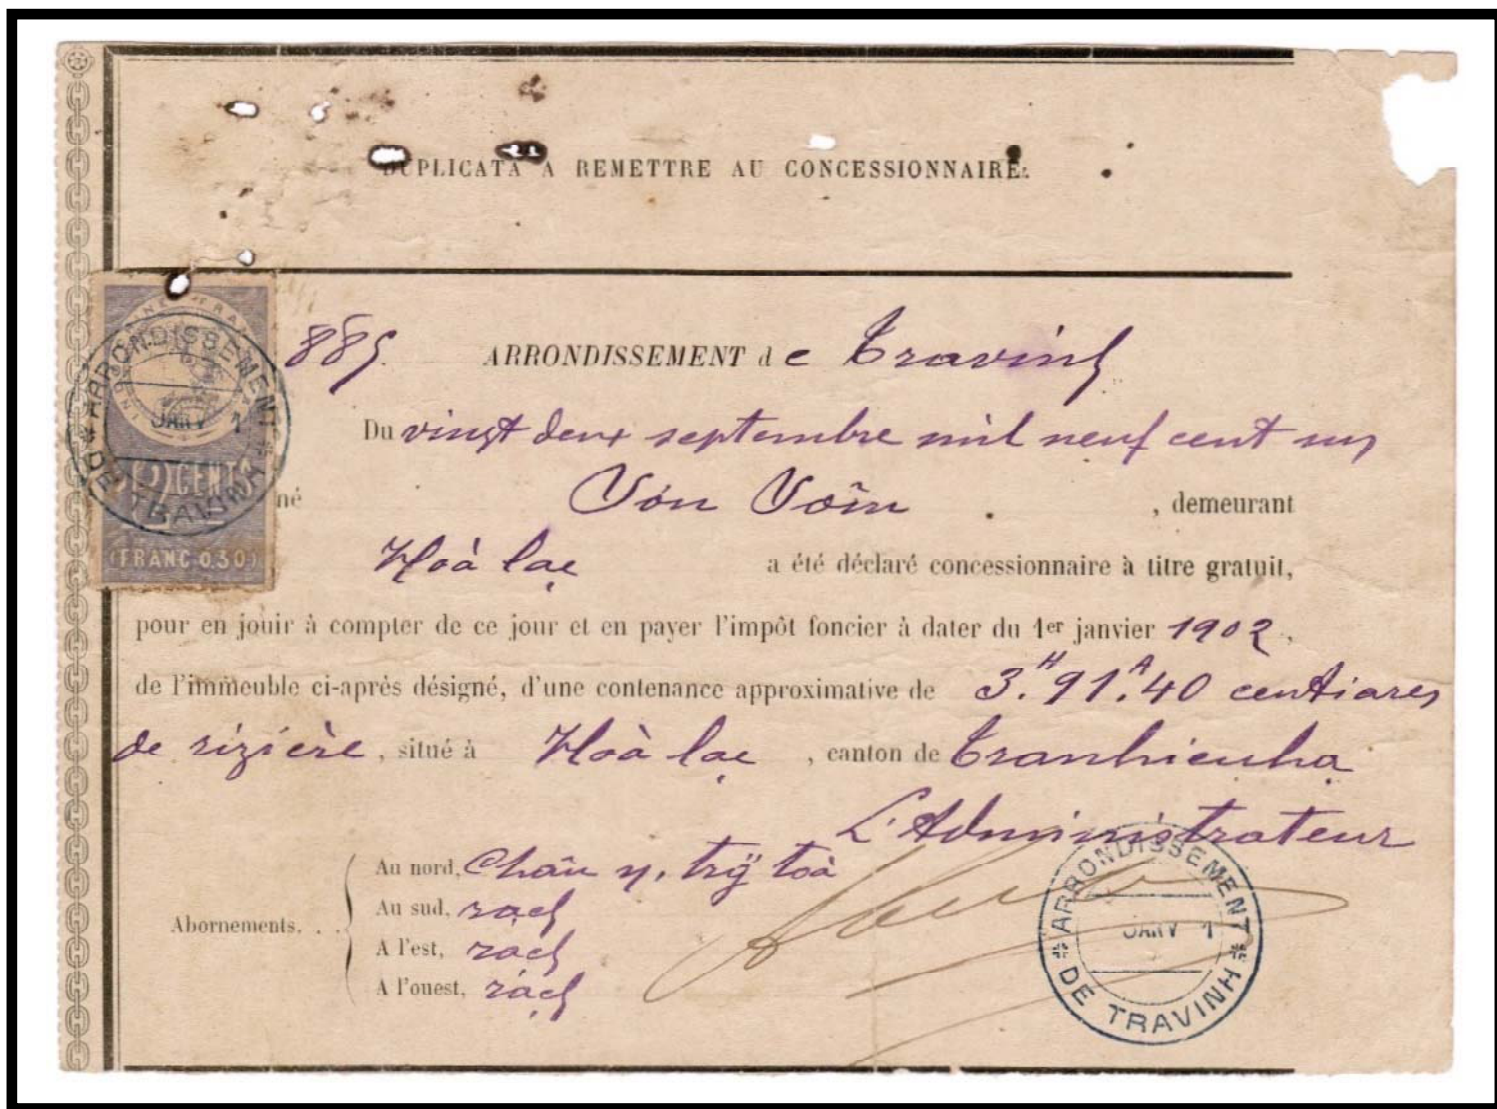 DUPLICATA A REMETTRE AU CONCESSIONNAIRE.
885. ARRONDISSEMENT de Travinh
Du vingt deux septembre mil neuf cent un
né Són Voên, demeurant
Hoà lạc a été déclaré concessionnaire à titre gratuit,
pour en jouir à compter de ce jour et en payer l'impôt foncier à dater du 1er janvier 1902,
de l'immeuble ci-après désigné, d'une contenance approximative de 3.H 91.A 40 centiares
de rizière, situé à Hoà lạc, canton de Tranhieuhạ
L'Administrateur
Abornements. . .
Au nord, Chân y, trÿ toà
Au sud, rạch
A l'est, rạch
A l'ouest, rạch
ARRONDISSEMENT DE TRAVINH
JANV 1
CENTS
(FRANC 0.30)
ARRONDISSEMENT DE TRAVINH
JANV 1